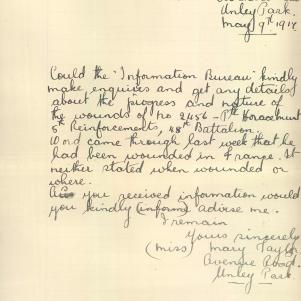 Unley Park.
May 9th. 1917
Could the "Information Bureau" kindly
make enquiries and get any details
about the progress and nature of
the wounds of no 2456 - Pte
5th Reinforcements, 48th Battalion.
Word came through last week that he
had been wounded in France. It
neither stated when wounded or
where.
you received information would
you kindly (inform) advise me.
I remain
Yours sincerely
(Miss) Mary Taylor
Avenue Road.
Unley Park.